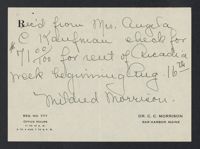 Rec'd from Mrs. Angela
C Kaufman check for
$71 00/100 for rent of Arcadia
week beginning Aug. 16th
Mildred Morrison.
DR. C. C. MORRISON
OFFICE HOURS
BAR HARBOR, MAINE